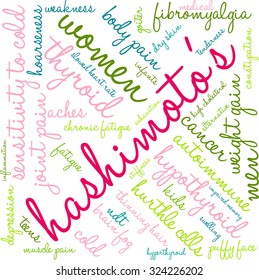 medical
weakness
fibromyalgia
hoarseness
body pain
dry skin
tenderness
women
sensitivity to cold
thyroid
slowed heart rate
infants
high cholesterol
alternative
constipation
joint pain
aches
hashimoto's
cancer
weight gain
men
chronic fatigue
fatigue
autoimmune
stiffness
kids
hypothyroid
impaired memory
inflammation
depression
thinning hair
hurthle cell
swelling
ndt
brain fog
teens
cold
muscle pain
hyperthyroid
puffy face
shutterstock.com · 324226202